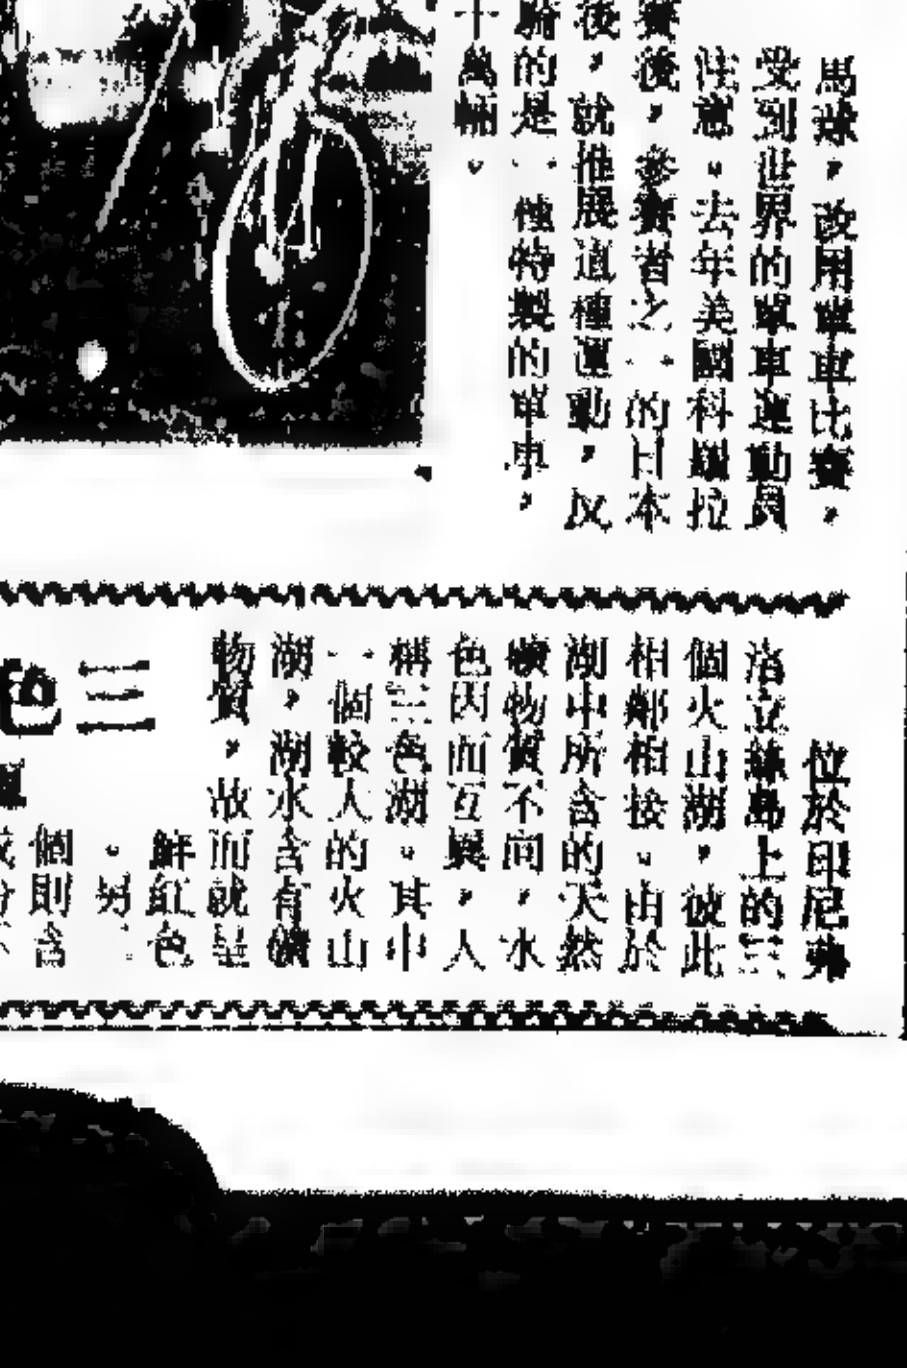 馬球，改用單車比賽，
受到世界的單車運動員
注意。去年美國科羅拉
賽後，參賽者之一的日本
後，就推展這種運動，反
騎的是一種特製的單車，
十萬輛。
位於印尼弗
洛立絲島上的三
個火山湖，彼此
相鄰相接。由於
湖中所含的天然
礦物質不同，水
色因而互異，人
稱三色湖。其中
一個較大的火山
湖，湖水含有礦
物質，故而就呈
鮮紅色
。另一
個則含
三色